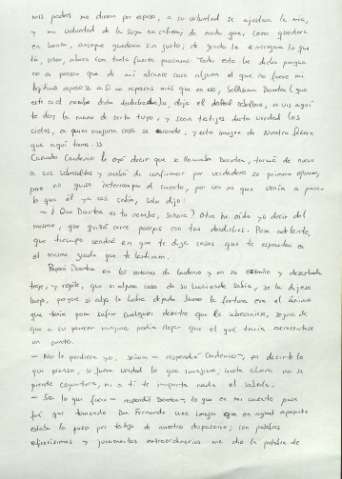 mis padres me dieren por esposo, a su voluntad se ajustara la mía,
y mi voluntad de la suya no saliera; de modo que, como quedara
con honra, aunque quedara sin gusto, de grado te entregara lo que
tú, señor, ahora con tanta fuerza procuras. Todo esto he dicho porque
no es pensar que de mí alcance cosa alguna el que no fuere mi
legítimo esposo
si no reparas más que en eso, bellísima Dorotea (que
este es el nombre desta desdichada), dijo el desleal caballero, ves aquí
te doy la mano de serlo tuyo, y sean testigos desta verdad los
cielos, a quien ninguna cosa se esconde, y esta imagen de Nuestra Señora
que aquí tienes.
Cuando Cardenio le oyó decir que se llamaba Dorotea, tornó de nuevo
a sus sobresaltos y acabó de confirmar por verdadera su primera opinión,
pero no quiso interrumpir el cuento, por ver en qué venía a parar
lo que él ya casi sabía; solo dijo:
— ¿Que Dorotea es tu nombre, señora? Otra he oído yo decir del
mismo, que quizá corre parejas con tus desdichas. Pasa adelante,
que tiempo vendrá en que te diga cosas que te espanten en
el mismo grado que te lastimen.
Reparó Dorotea en las razones de Cardenio y en su extraño y desastrado
traje, y rogóle que si alguna cosa de su hacienda sabía, se la dijese
luego, porque si algo le había dejado bueno la fortuna era el ánimo
que tenía para sufrir cualquier desastre que le sobreviniese, segura de
que a su parecer ninguno podía llegar que el que tenía acrecentase
un punto.
— No le perdiera yo, señora — respondió Cardenio —, en decirte lo
que pienso, si fuera verdad lo que imagino; hasta ahora no se
pierde coyuntura, ni a ti te importa nada el saberlo.
— Sea lo que fuere — respondió Dorotea —, lo que en mi cuento pasa
fue que tomando Don Fernando una imagen que en aquel aposento
estaba la puso por testigo de nuestro desposorio; con palabras
eficacísimas y juramentos extraordinarios me dio la palabra de